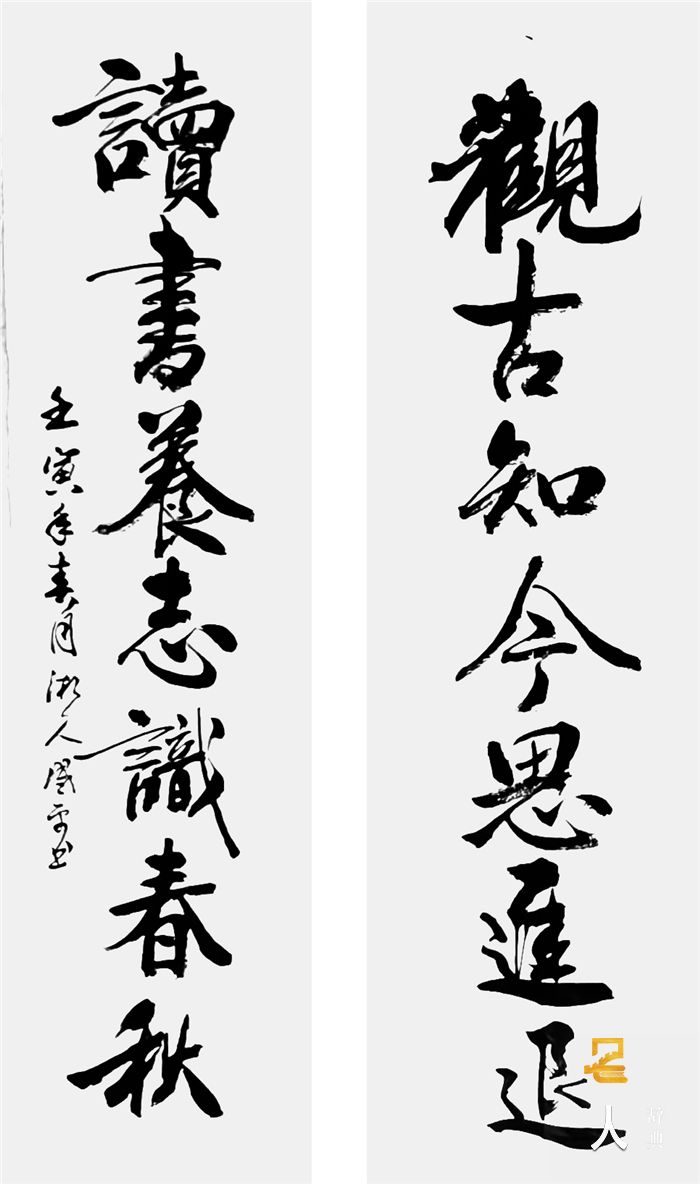 觀古知今思進退
讀書養志識春秋
壬寅年春月湘人國平書
人
辞典